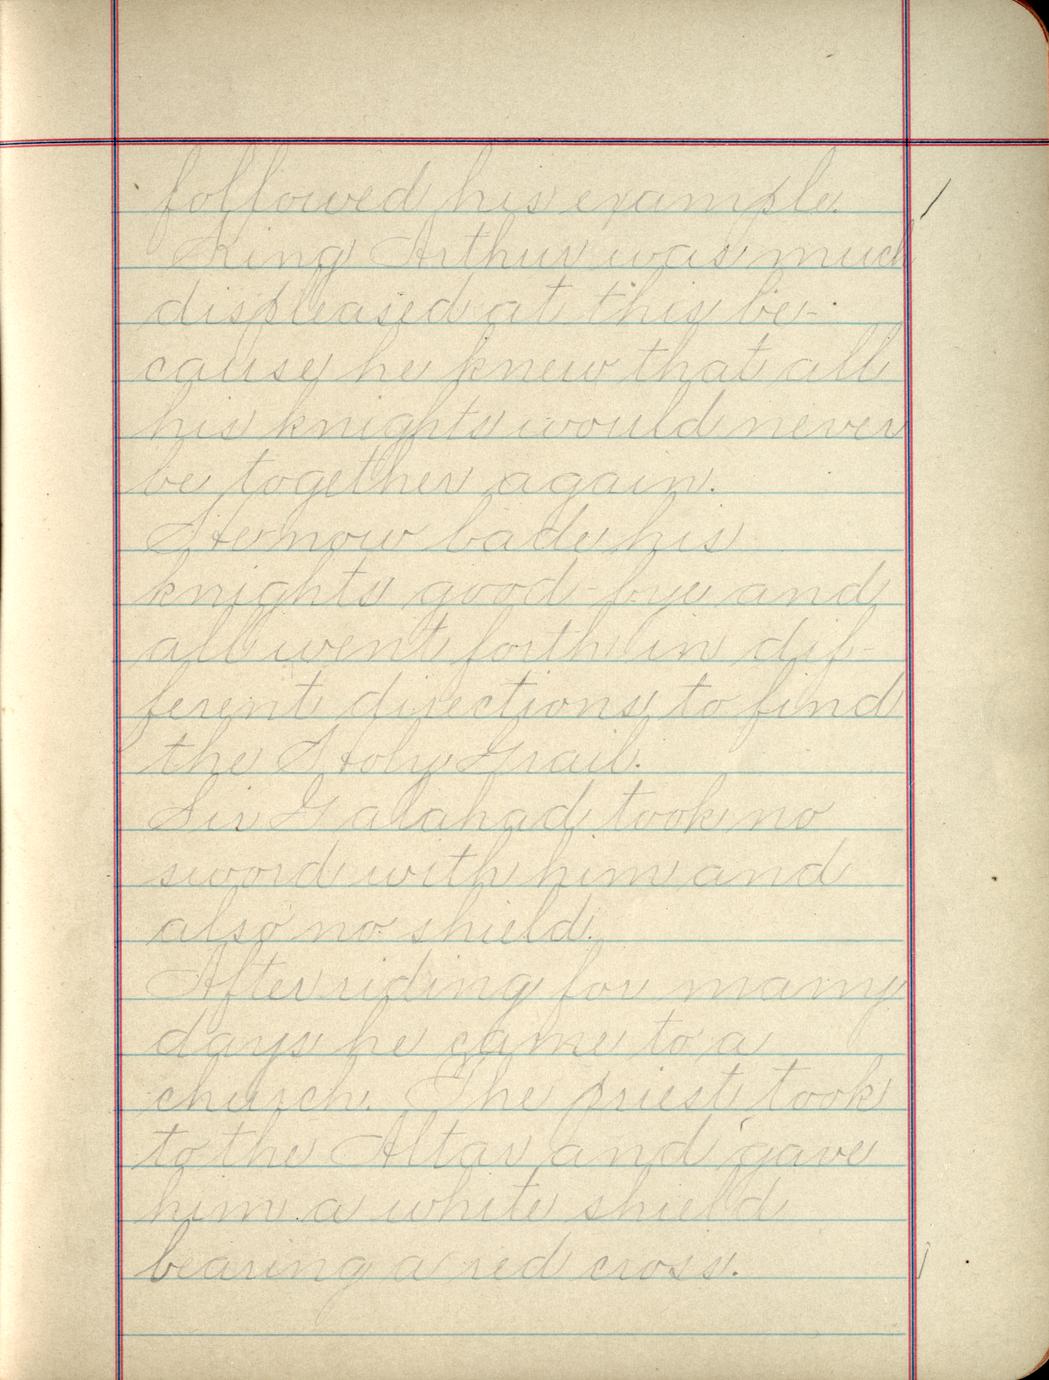 followed his example.
King Arthur was much
displeased at this be-
cause he knew that all
his knights would never
be together again.
He now bade his
knights good-bye and
all went forth in dif-
ferent directions to find
the Holy Grail.
Sir Galahad took no
sword with him and
also no shield.
After riding for many
days he came to a
church. The priest took
to the Altar and gave
him a white shield
bearing a red cross.